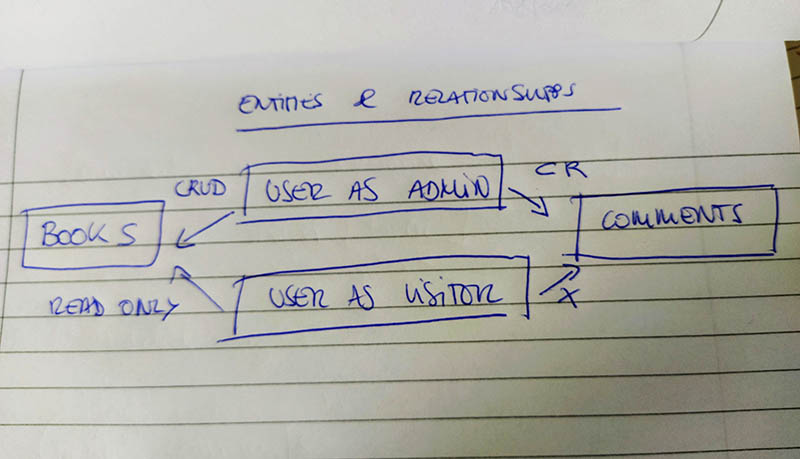 ENTITIES & RELATIONSHIPS
CRUD
USER AS ADMIN
CR
BOOKS
COMMENTS
READ ONLY
USER AS VISITOR
X